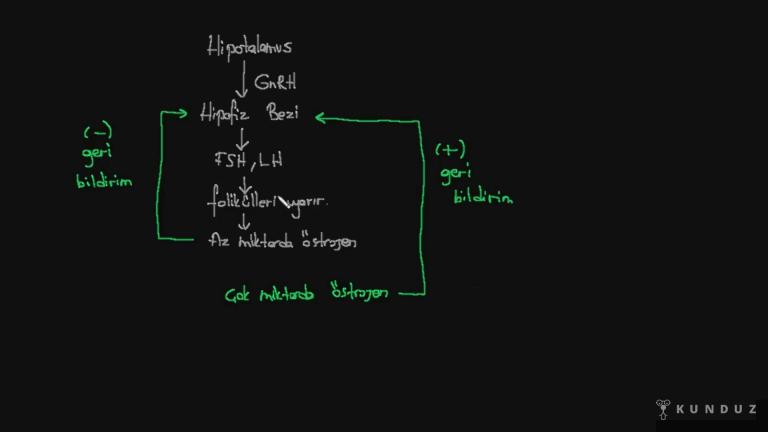 Hipotalamus
GnRH
Hipofiz Bezi
(-)
geri
bildirim
(+)
geri
bildirim
FSH, LH
folikülleri uyarır.
Az miktarda östrojen
Çok miktarda östrojen
KUNDUZ